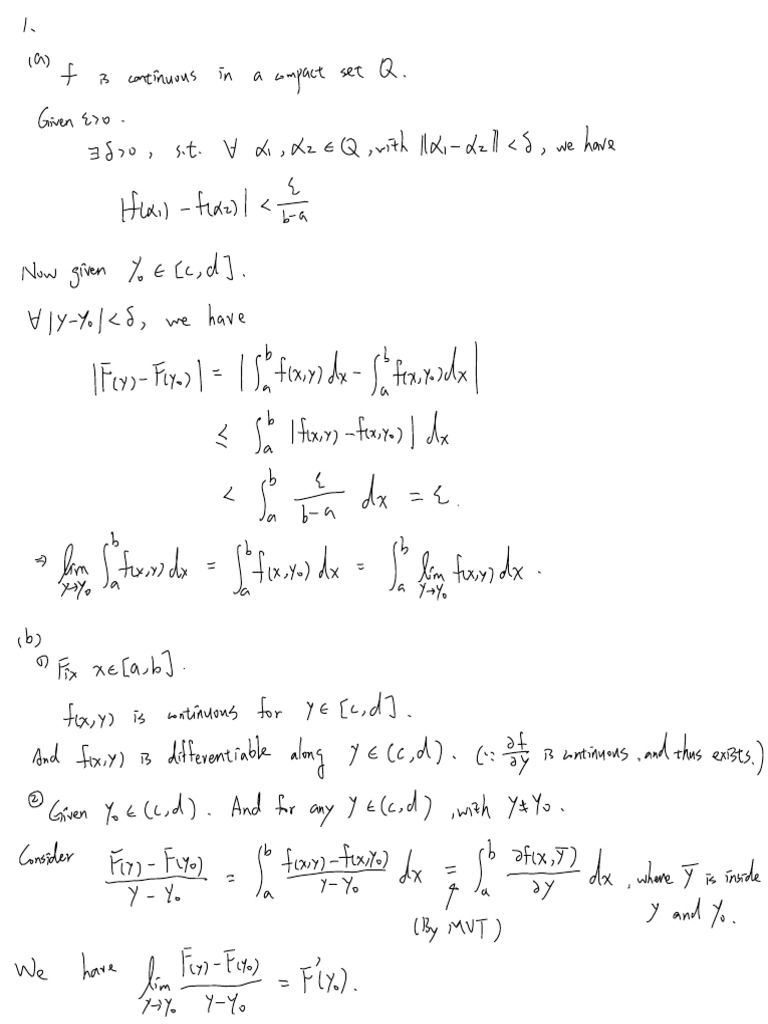 1.
(a) f is continuous in a compact set Q.
Given ε>0.
∃δ>0, s.t. ∀ α₁, α₂ ∈ Q, with ‖α₁-α₂‖<δ, we have
|f(α₁) - f(α₂)| < ε/(b-a)
Now given y₀ ∈ [c,d].
∀|y-y₀|<δ, we have
|F(y)-F(y₀)| = |∫ₐᵇ f(x,y) dx - ∫ₐᵇ f(x,y₀) dx|
≤ ∫ₐᵇ |f(x,y) - f(x,y₀)| dx
< ∫ₐᵇ ε/(b-a) dx = ε.
⇒ lim_{y→y₀} ∫ₐᵇ f(x,y) dx = ∫ₐᵇ f(x,y₀) dx = ∫ₐᵇ lim_{y→y₀} f(x,y) dx.
(b)
① Fix x∈[a,b].
f(x,y) is continuous for y∈[c,d].
And f(x,y) is differentiable along y∈(c,d). (∵ ∂f/∂y is continuous, and thus exists.)
② Given y₀∈(c,d). And for any y∈(c,d), with y≠y₀.
Consider (F(y)-F(y₀))/(y-y₀) = ∫ₐᵇ (f(x,y)-f(x,y₀))/(y-y₀) dx = ∫ₐᵇ ∂f(x,ȳ)/∂y dx, where ȳ is inside
y and y₀.
(By MVT)
We have lim_{y→y₀} (F(y)-F(y₀))/(y-y₀) = F'(y₀).